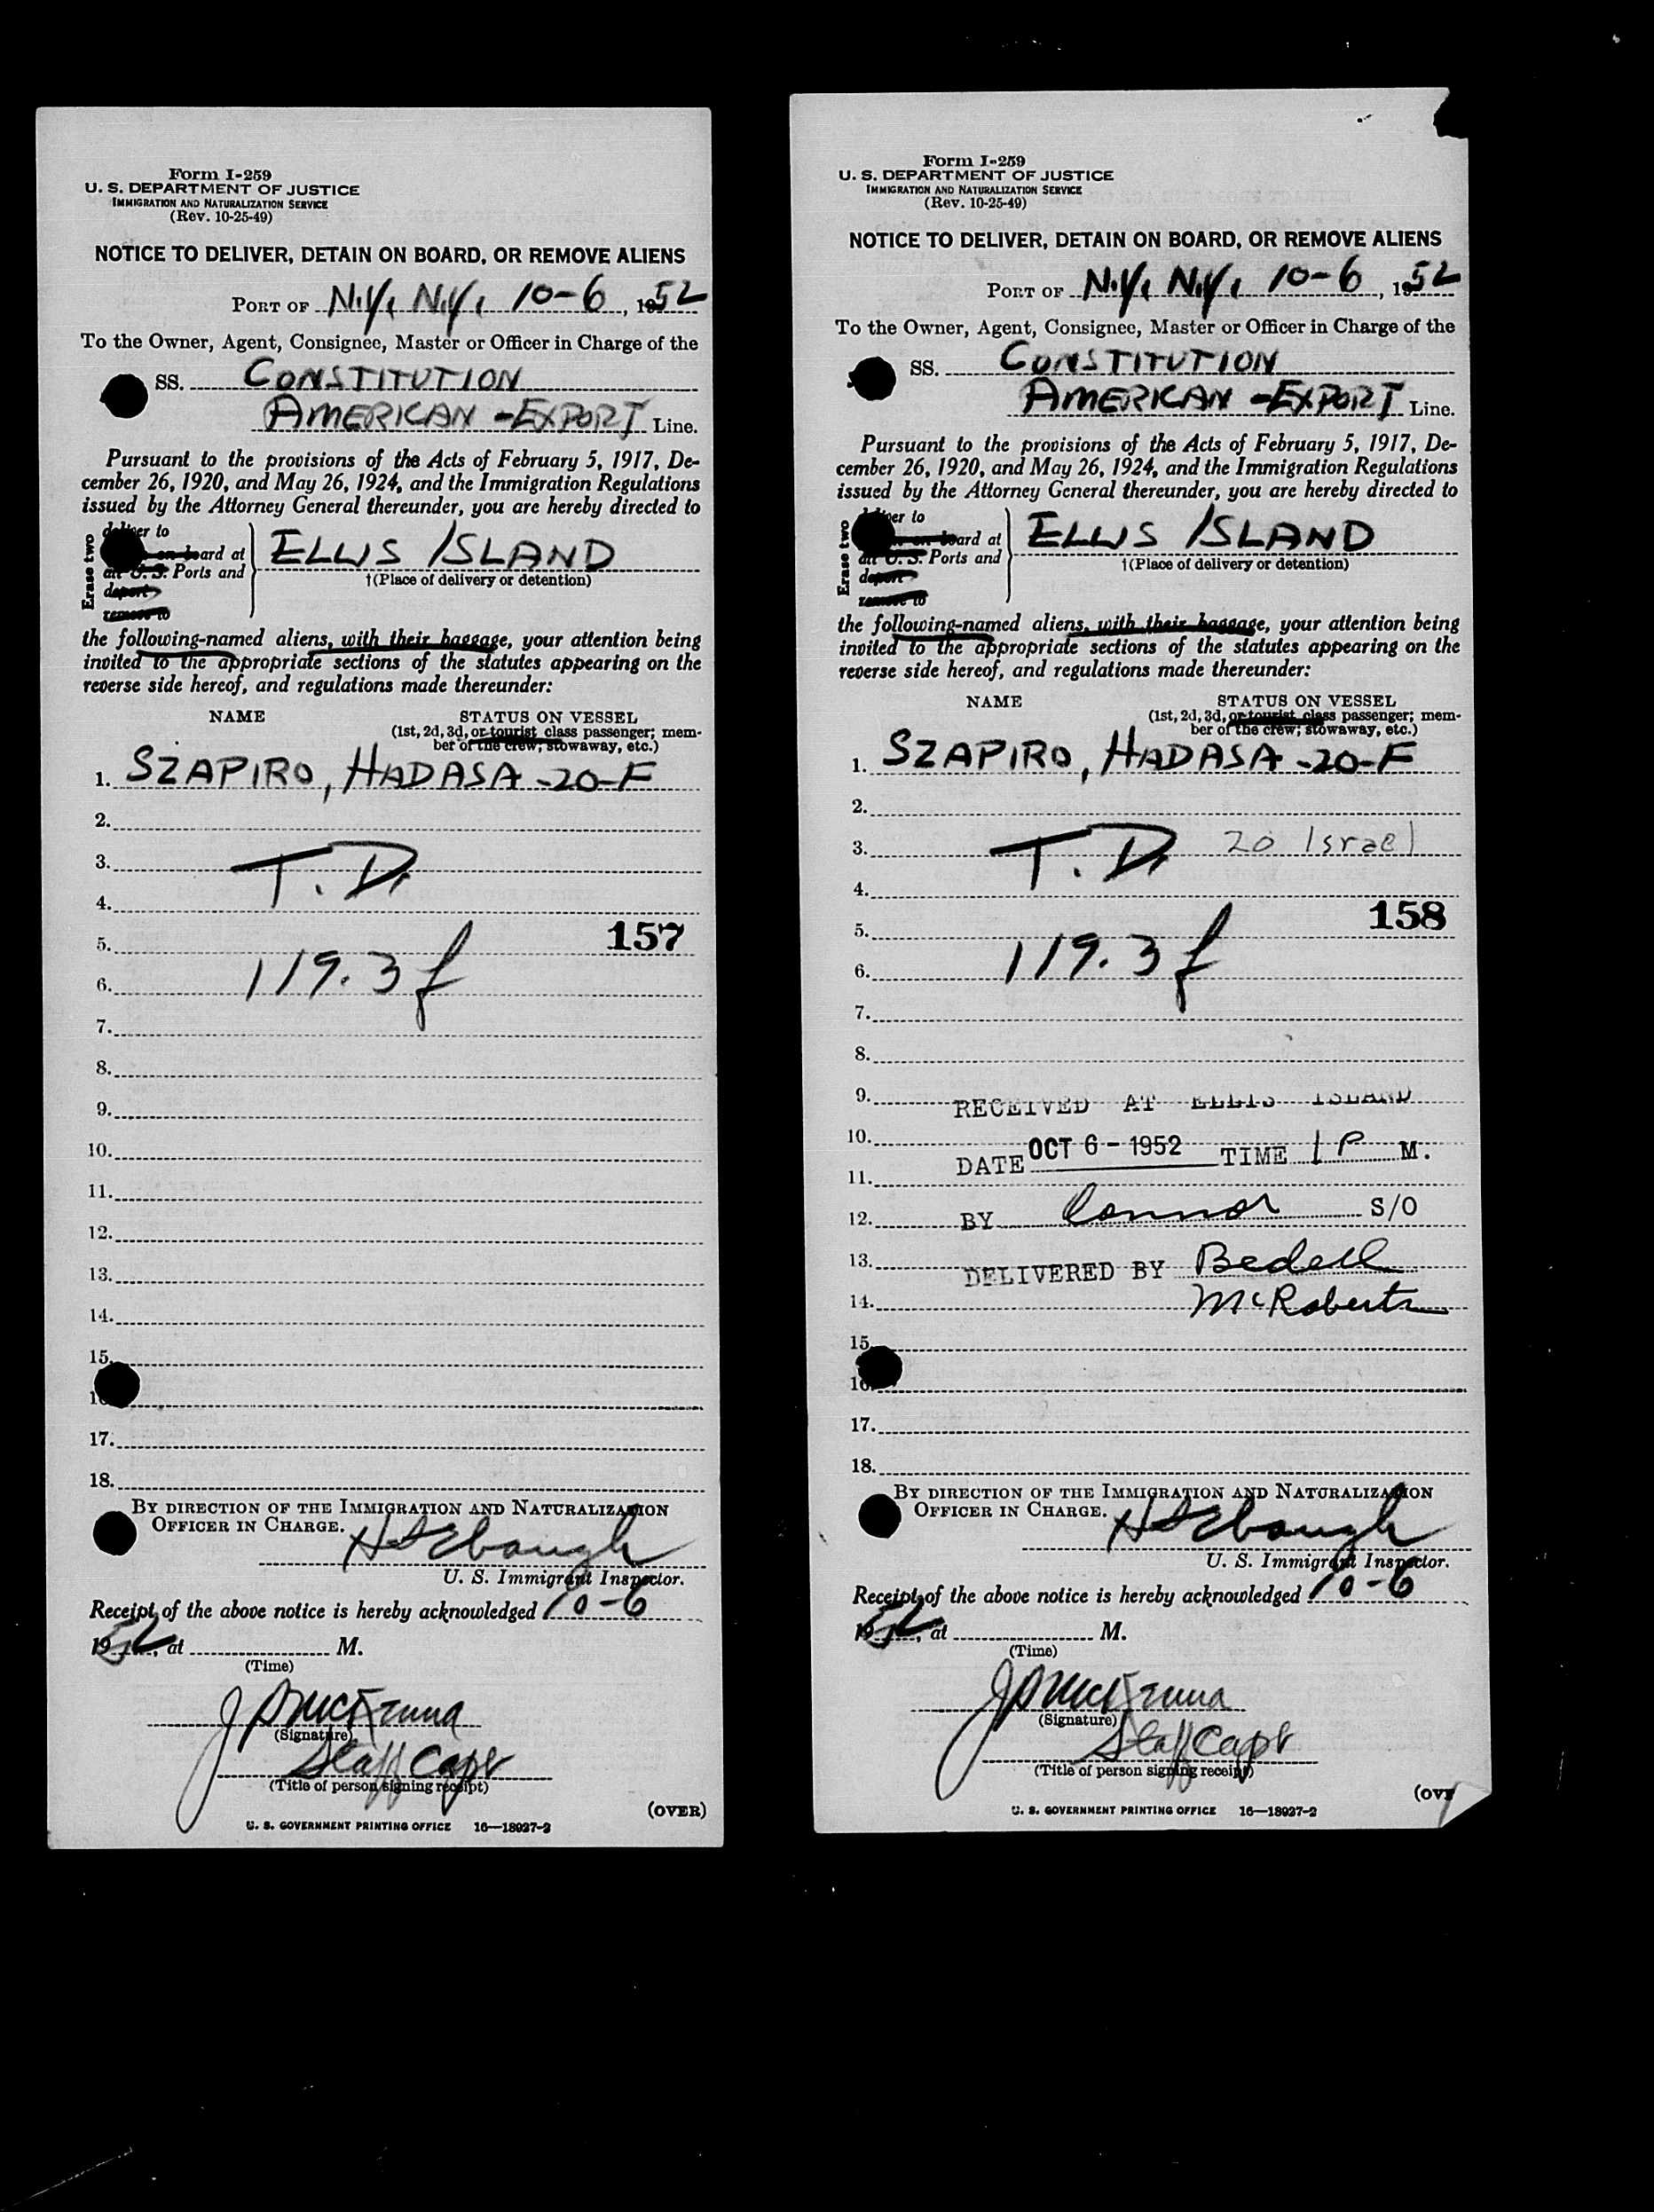 Form I-259
U. S. DEPARTMENT OF JUSTICE
IMMIGRATION AND NATURALIZATION SERVICE
(Rev. 10-25-49)
NOTICE TO DELIVER, DETAIN ON BOARD, OR REMOVE ALIENS
PORT OF N.Y, N.Y, 10-6, 1952
To the Owner, Agent, Consignee, Master or Officer in Charge of the
SS. CONSTITUTION
AMERICAN-EXPORT Line.
Pursuant to the provisions of the Acts of February 5, 1917, De-
cember 26, 1920, and May 26, 1924, and the Immigration Regulations
issued by the Attorney General thereunder, you are hereby directed to
Erase two
deliver to
board at
all U. S. Ports and
deport
remove to
ELLIS ISLAND
†(Place of delivery or detention)
the following-named aliens, with their baggage, your attention being
invited to the appropriate sections of the statutes appearing on the
reverse side hereof, and regulations made thereunder:
NAME STATUS ON VESSEL
(1st, 2d, 3d, or tourist class passenger; mem-
ber of the crew; stowaway, etc.)
1. SZAPIRO, HADASA -20-F
2.
3. T.D.
4.
5. 157
6. 119.3 f
7.
8.
9.
10.
11.
12.
13.
14.
15.
16.
17.
18.
BY DIRECTION OF THE IMMIGRATION AND NATURALIZATION
OFFICER IN CHARGE.
U. S. Immigrant Inspector.
Receipt of the above notice is hereby acknowledged 10-6
1952, at M.
(Time)
J P McKenna
(Signature)
Staff Capt
(Title of person signing receipt)
(OVER)
U. S. GOVERNMENT PRINTING OFFICE 16—18027-2
Form I-259
U. S. DEPARTMENT OF JUSTICE
IMMIGRATION AND NATURALIZATION SERVICE
(Rev. 10-25-49)
NOTICE TO DELIVER, DETAIN ON BOARD, OR REMOVE ALIENS
PORT OF N.Y, N.Y, 10-6, 1952
To the Owner, Agent, Consignee, Master or Officer in Charge of the
SS. CONSTITUTION
AMERICAN-EXPORT Line.
Pursuant to the provisions of the Acts of February 5, 1917, De-
cember 26, 1920, and May 26, 1924, and the Immigration Regulations
issued by the Attorney General thereunder, you are hereby directed to
Erase two
to
board at
all U. S. Ports and
deport
remove to
ELLIS ISLAND
†(Place of delivery or detention)
the following-named aliens, with their baggage, your attention being
invited to the appropriate sections of the statutes appearing on the
reverse side hereof, and regulations made thereunder:
NAME STATUS ON VESSEL
(1st, 2d, 3d, or tourist class passenger; mem-
ber of the crew; stowaway, etc.)
1. SZAPIRO, HADASA -20-F
2.
3. T.D. 20 Israel
4.
5. 158
6. 119.3 f
7.
8.
9. RECEIVED AT ELLIS ISLAND
10. DATE OCT 6 - 1952 TIME 1 P M.
11.
12. BY Connor S/O
13. DELIVERED BY Bedell
14. McRoberts
15.
16.
17.
18.
BY DIRECTION OF THE IMMIGRATION AND NATURALIZATION
OFFICER IN CHARGE.
U. S. Immigrant Inspector.
Receipt of the above notice is hereby acknowledged 10-6
1952, at M.
(Time)
J P McKenna
(Signature)
Staff Capt
(Title of person signing receipt)
(OVE
U. S. GOVERNMENT PRINTING OFFICE 16—18027-2